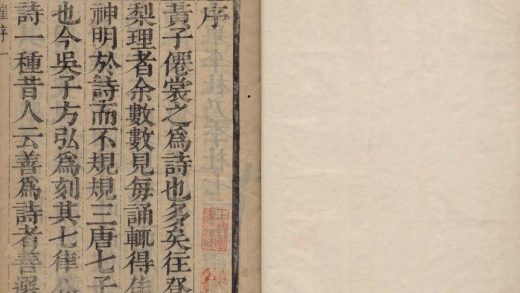 序
黃子僊裳之爲詩也多矣往癸
梨理者余數數見每誦輒得佳
神明於詩而不規規三唐七子
也今吳子方弘爲刻其七律
詩一種昔人云善爲詩者善選